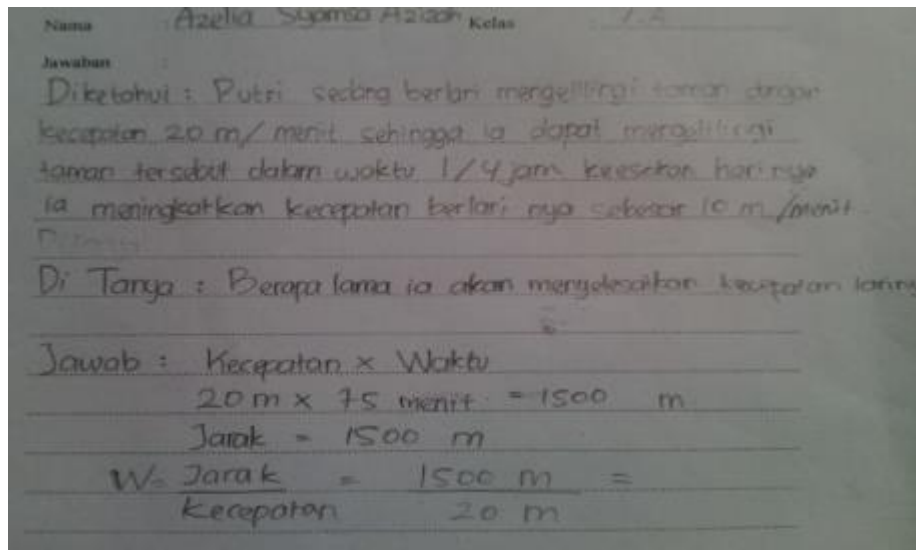 Nama Azelia Syamsa Azizah Kelas : 7.A
Jawaban :
Diketahui : Putri sedang berlari mengelilingi taman dengan
kecepatan 20 m/menit sehingga ia dapat mengelilingi
taman tersebut dalam waktu 1/4 jam keesokan harinya
ia meningkatkan kecepatan berlari nya sebesar 10 m/menit
Di Tanya : Berapa lama ia akan menyelesaikan kecepatan larinya
Jawab : Kecepatan x Waktu
20 m x 75 menit = 1500 m
Jarak = 1500 m
W= Jarak = 1500 m =
Kecepatan 20 m